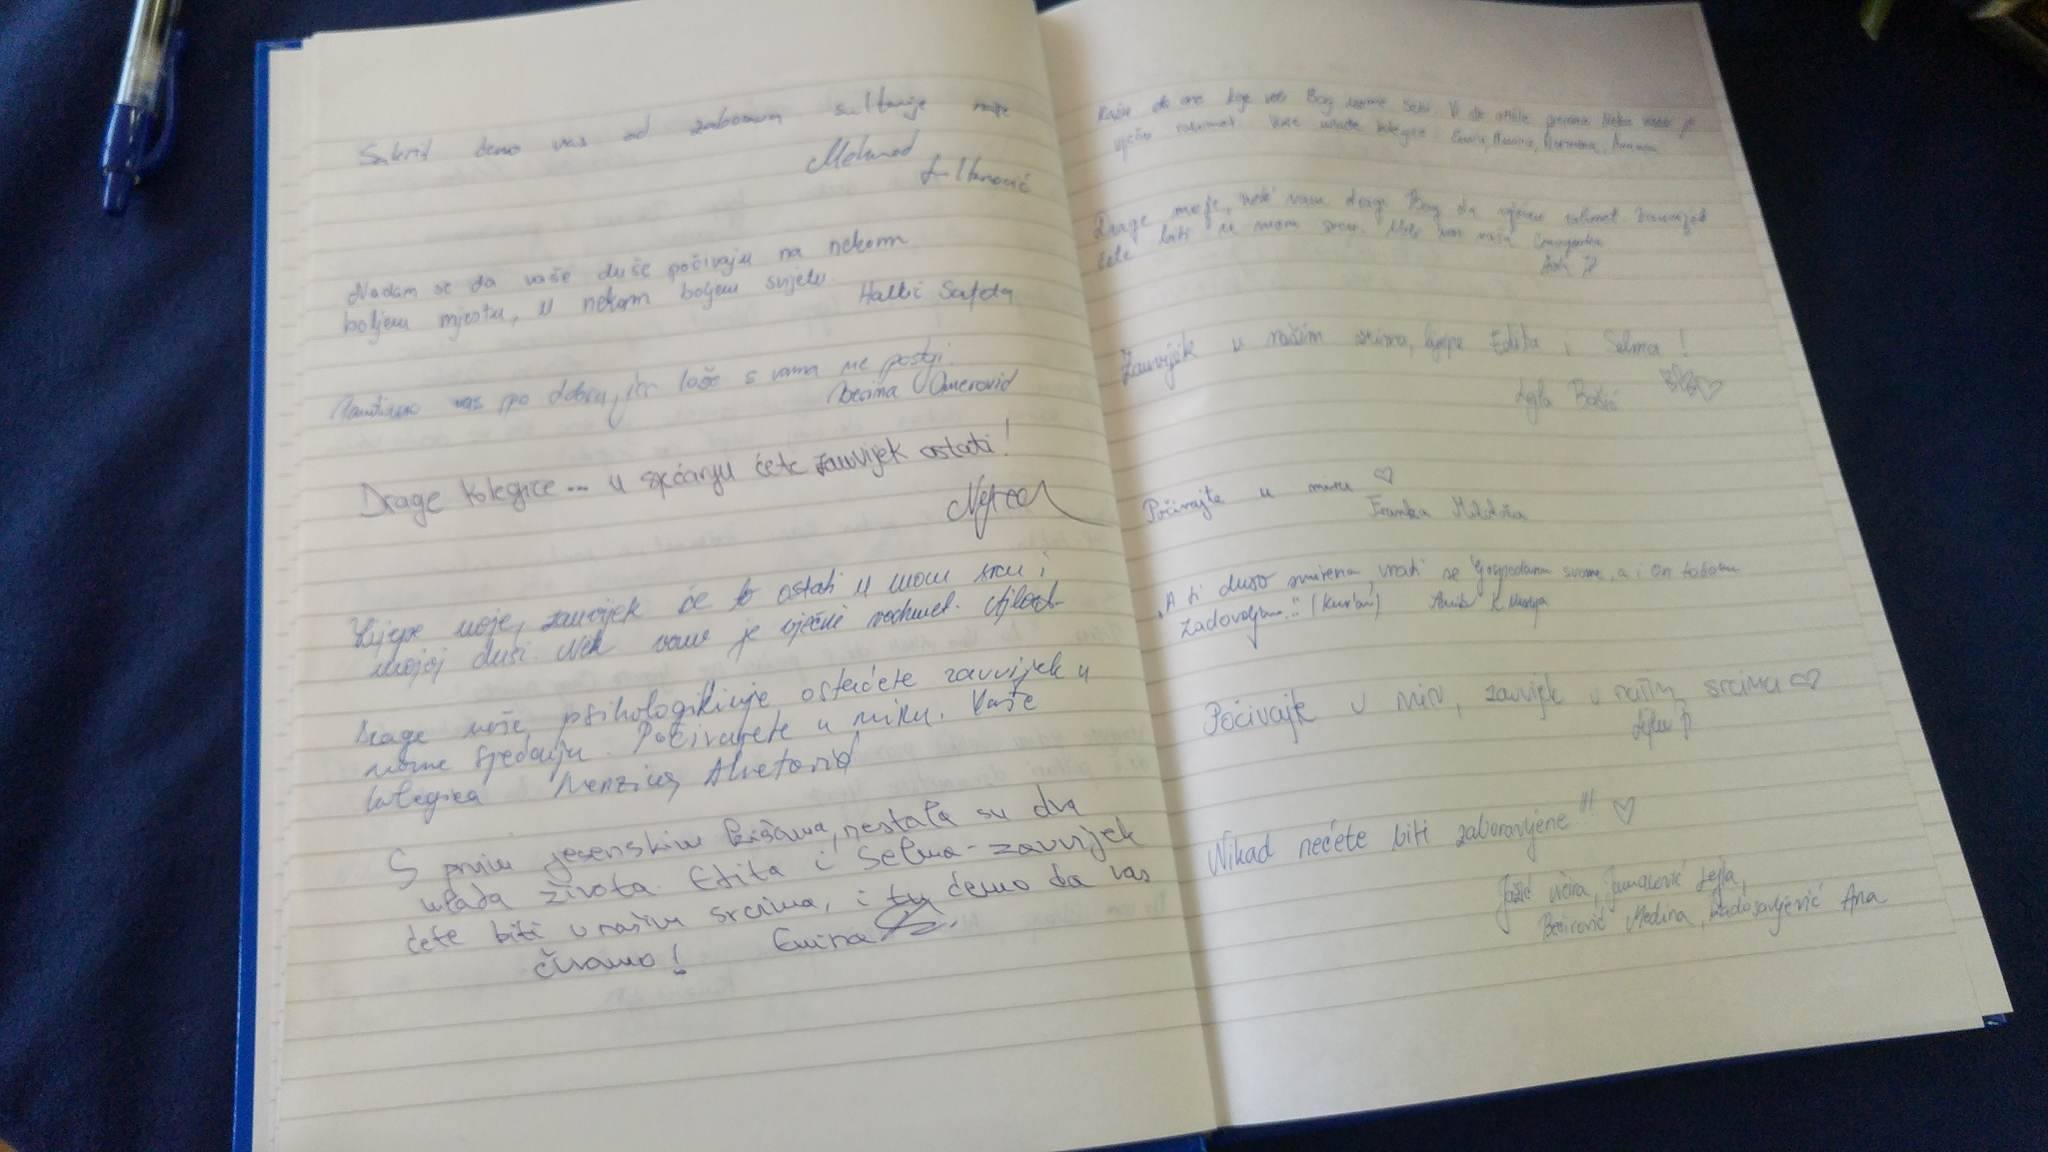 Sakrit ćemo vas od zaborava sultanije naše
Mehmed
Sultanović
Nadam se da vaše duše počivaju na nekom
boljem mjestu, u nekom boljem svijetu.
Halkić Safeta
Pamtimo vas po dobru, jer loše s vama ne postoji.
Omerović
Drage kolegice... u sjećanju ćete zauvijek ostati!
Lijepe moje, zauvijek će to ostati u mom srcu i
mojoj duši. Nek vam je vječni rahmet.
Drage naše psihologikinje, ostaćete zauvijek u
mome sjećanju. Počivajte u miru. Vaše
kolegica
S prvim jesenskim kišama, nestala su dva
mlada života. Edita i Selma - zauvijek
ćete biti u našim srcima, i tu ćemo da vas
čuvamo! Emina
Kažu da one koje voli Bog uzme sebi. Vi ste otišle neka vam je
vječni rahmet. Vaše mlade kolegice
Drage moje, neka vam dragi Bog da vječni rahmet. Zauvijek
ćete biti u mom srcu. Voli vas vaša
Zauvijek u našim srcima, lijepe Edita i Selma!
Lejla Bašić
Počivajte u miru ♡
Franka
"A ti dušo smirena, vrati se Gospodaru svome, a i On tobom
zadovoljan..." (Kur'an)
Počivajte u miru, zauvijek u našim srcima ♡
Nikad nećete biti zaboravljene!!! ♡
Lejla,
Medina, Radosavljević Ana